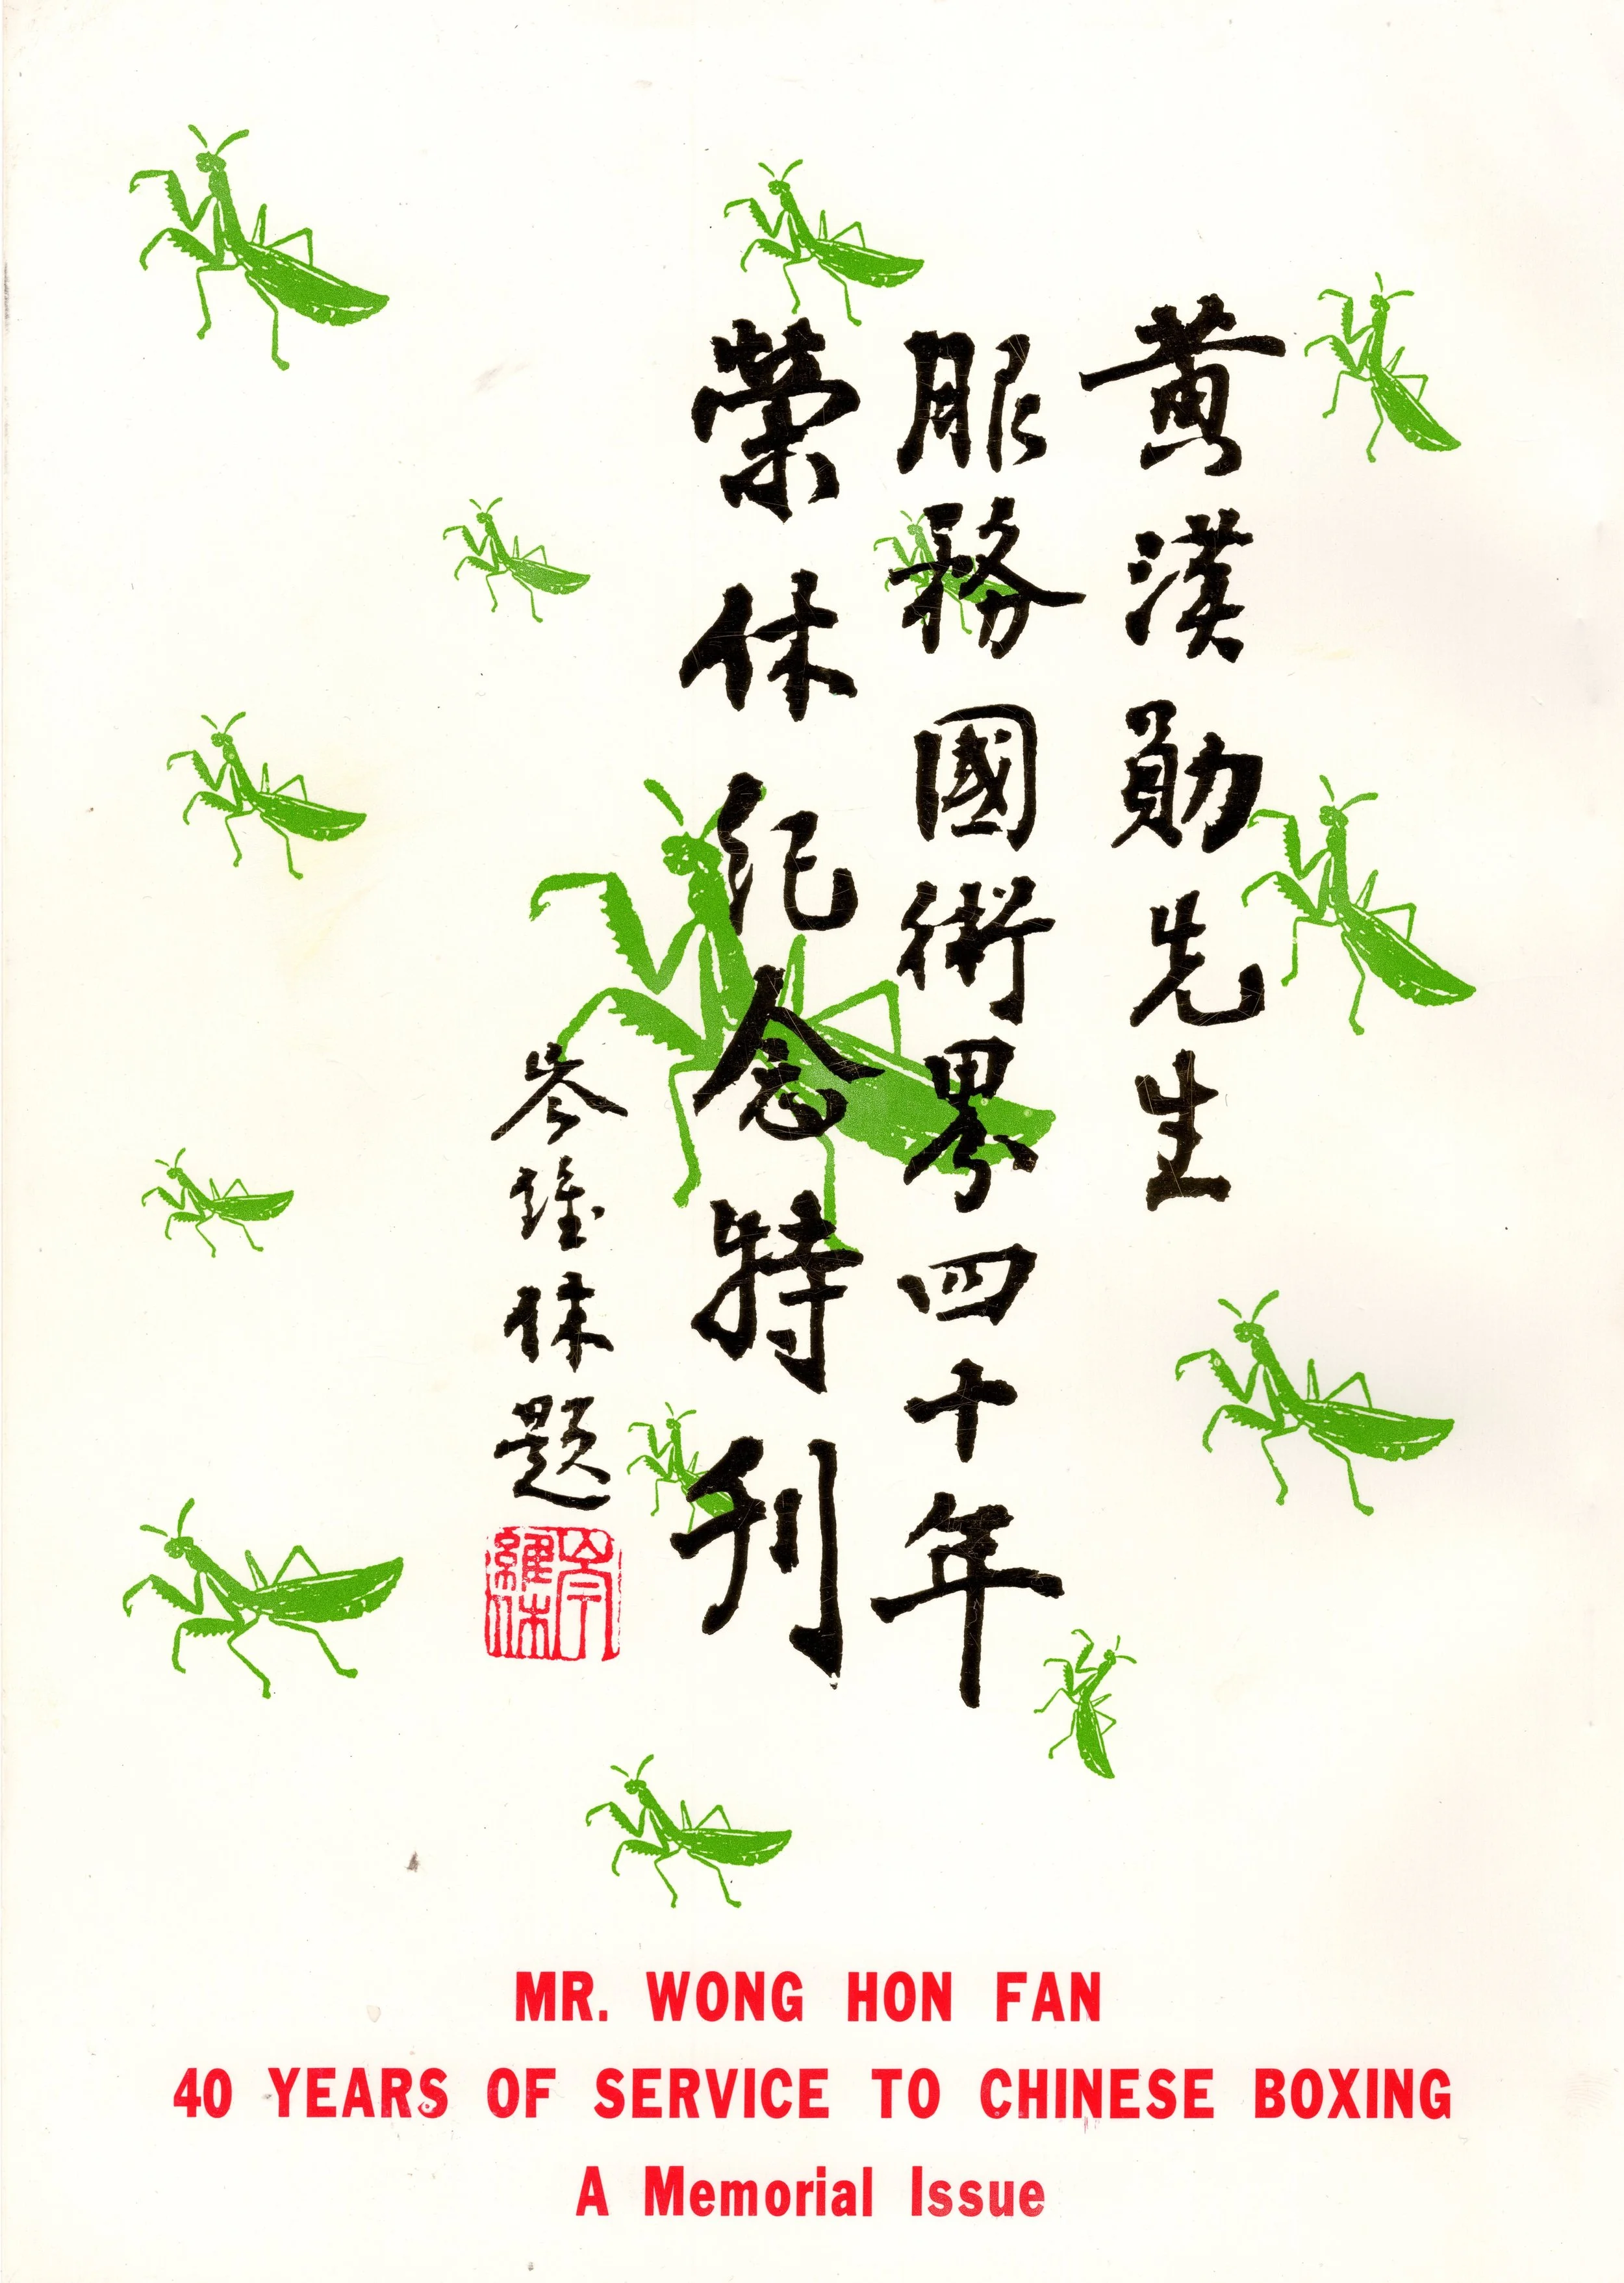 黃漢勛先生
服務國術界四十年
榮休紀念特刊
岑維休題
岑維休
MR. WONG HON FAN
40 YEARS OF SERVICE TO CHINESE BOXING
A Memorial Issue